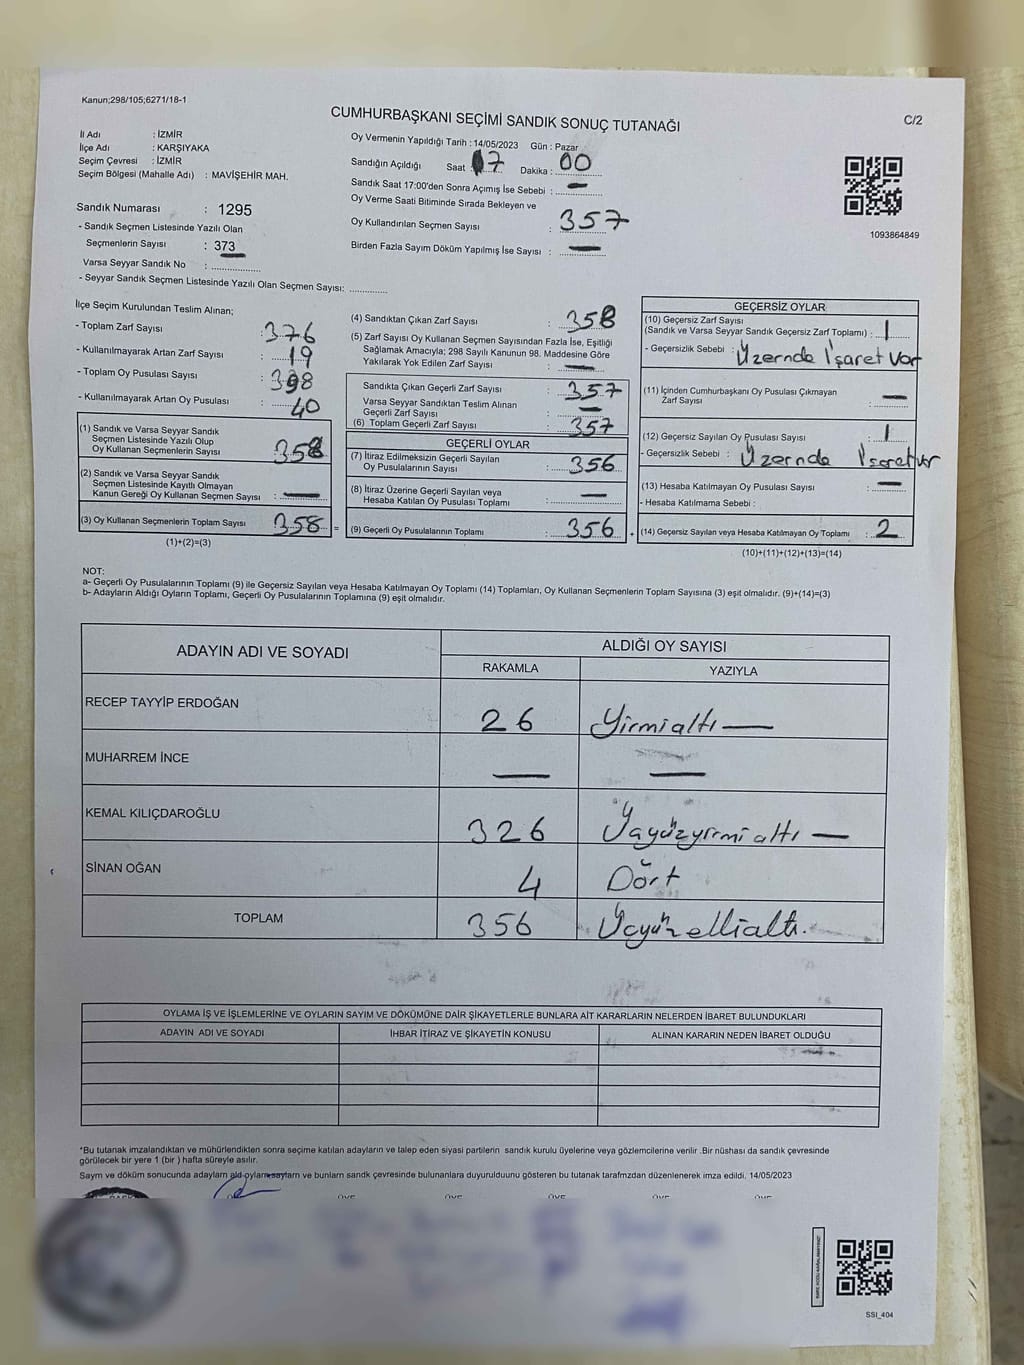 Kanun;298/105;6271/18-1
CUMHURBAŞKANI SEÇİMİ SANDIK SONUÇ TUTANAĞI
C/2
İl Adı : İZMİR
İlçe Adı : KARŞIYAKA
Seçim Çevresi : İZMİR
Seçim Bölgesi (Mahalle Adı) : MAVİŞEHİR MAH.
Sandık Numarası : 1295
- Sandık Seçmen Listesinde Yazılı Olan
Seçmenlerin Sayısı : 373
Varsa Seyyar Sandık No :
- Seyyar Sandık Seçmen Listesinde Yazılı Olan Seçmen Sayısı:
Oy Vermenin Yapıldığı Tarih : 14/05/2023 Gün : Pazar
Sandığın Açıldığı Saat : 17 Dakika : 00
Sandık Saat 17:00'den Sonra Açımış İse Sebebi : —
Oy Verme Saati Bitiminde Sırada Bekleyen ve
Oy Kullandırılan Seçmen Sayısı : 357
Birden Fazla Sayım Döküm Yapılmış İse Sayısı : —
1093864849
İlçe Seçim Kurulundan Teslim Alınan;
- Toplam Zarf Sayısı : 376
- Kullanılmayarak Artan Zarf Sayısı : 19
- Toplam Oy Pusulası Sayısı : 398
- Kullanılmayarak Artan Oy Pusulası : 40
(1) Sandık ve Varsa Seyyar Sandık
Seçmen Listesinde Yazılı Olup
Oy Kullanan Seçmenlerin Sayısı : 358
(2) Sandık ve Varsa Seyyar Sandık
Seçmen Listesinde Kayıtlı Olmayan
Kanun Gereği Oy Kullanan Seçmen Sayısı : —
(3) Oy Kullanan Seçmenlerin Toplam Sayısı : 358 =
(1)+(2)=(3)
(4) Sandıktan Çıkan Zarf Sayısı : 358
(5) Zarf Sayısı Oy Kullanan Seçmen Sayısından Fazla İse, Eşitliği
Sağlamak Amacıyla; 298 Sayılı Kanunun 98. Maddesine Göre
Yakılarak Yok Edilen Zarf Sayısı : —
Sandıkta Çıkan Geçerli Zarf Sayısı : 357
Varsa Seyyar Sandıktan Teslim Alınan
Geçerli Zarf Sayısı : —
(6) Toplam Geçerli Zarf Sayısı : 357
GEÇERLİ OYLAR
(7) İtiraz Edilmeksizin Geçerli Sayılan
Oy Pusulalarının Sayısı : 356
(8) İtiraz Üzerine Geçerli Sayılan veya
Hesaba Katılan Oy Pusulası Toplamı : —
(9) Geçerli Oy Pusulalarının Toplamı : 356 +
GEÇERSİZ OYLAR
(10) Geçersiz Zarf Sayısı
(Sandık ve Varsa Seyyar Sandık Geçersiz Zarf Toplamı) : 1
- Geçersizlik Sebebi : Üzernde İşaret var
(11) İçinden Cumhurbaşkanı Oy Pusulası Çıkmayan
Zarf Sayısı : —
(12) Geçersiz Sayılan Oy Pusulası Sayısı : 1
- Geçersizlik Sebebi : Üzernde İşaret var
(13) Hesaba Katılmayan Oy Pusulası Sayısı : —
- Hesaba Katılmama Sebebi :
(14) Geçersiz Sayılan veya Hesaba Katılmayan Oy Toplamı : 2
(10)+(11)+(12)+(13)=(14)
NOT:
a- Geçerli Oy Pusulalarının Toplamı (9) ile Geçersiz Sayılan veya Hesaba Katılmayan Oy Toplamı (14) Toplamları, Oy Kullanan Seçmenlerin Toplam Sayısına (3) eşit olmalıdır. (9)+(14)=(3)
b- Adayların Aldığı Oyların Toplamı, Geçerli Oy Pusulalarının Toplamına (9) eşit olmalıdır.
ADAYIN ADI VE SOYADI
ALDIĞI OY SAYISI
RAKAMLA YAZIYLA
RECEP TAYYİP ERDOĞAN 26 Yirmialtı —
MUHARREM İNCE — —
KEMAL KILIÇDAROĞLU 326
SİNAN OĞAN 4 Dört
TOPLAM 356 Üçyüzellialtı.
OYLAMA İŞ VE İŞLEMLERİNE VE OYLARIN SAYIM VE DÖKÜMÜNE DAİR ŞİKAYETLERLE BUNLARA AİT KARARLARIN NELERDEN İBARET BULUNDUKLARI
ADAYIN ADI VE SOYADI İHBAR İTİRAZ VE ŞİKAYETİN KONUSU ALINAN KARARIN NEDEN İBARET OLDUĞU
*Bu tutanak imzalandıktan ve mühürlendikten sonra seçime katılan adayların ve talep eden siyasi partilerin sandık kurulu üyelerine veya gözlemcilerine verilir .Bir nüshası da sandık çevresinde
görülecek bir yere 1 (bir ) hafta süreyle asılır.
Sayım ve döküm sonucunda adayların aldığı oyların sayıları ve bunların sandık çevresinde bulunanlara duyurulduğunu gösteren bu tutanak tarafımızdan düzenlenerek imza edildi. 14/05/2023
SSI_404